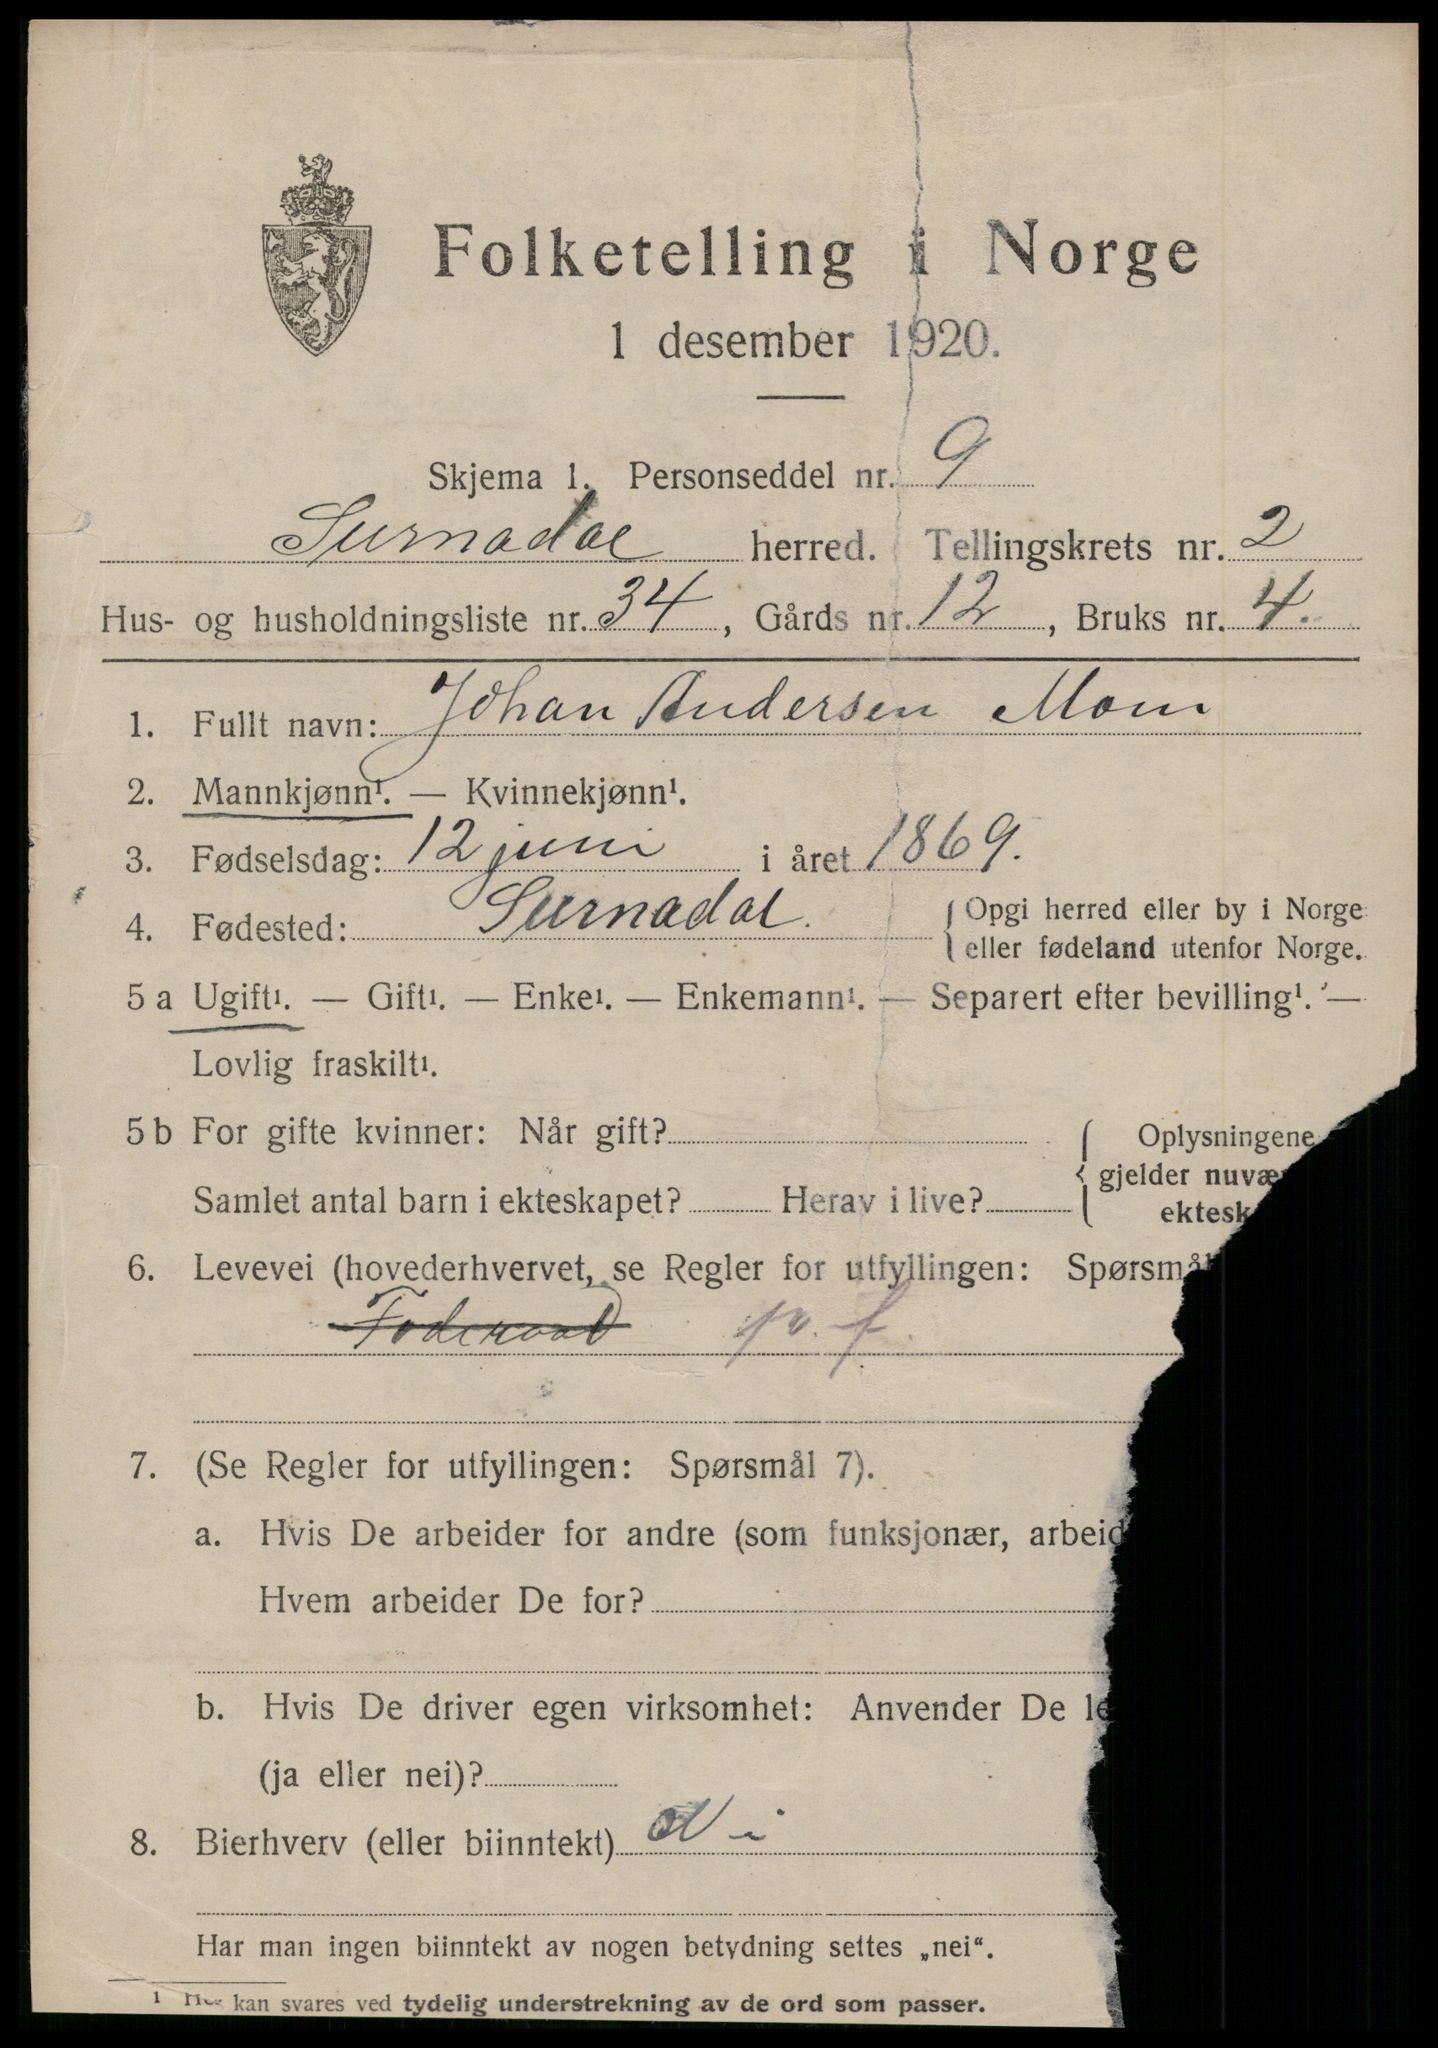 Folketelling i Norge
1 desember 1920.
Skjema 1. Personseddel nr. 9
Surnadal herred. Tellingskrets nr. 2
Hus- og husholdningsliste nr. 34, Gårds nr. 12, Bruks nr. 4.
1. Fullt navn: Johan Andersen Moen
2. Mannkjønn¹. — Kvinnekjønn¹.
3. Fødselsdag: 12 juni i året 1869.
4. Fødested: Surnadal. { Opgi herred eller by i Norge
eller fødeland utenfor Norge.
5 a Ugift¹. — Gift¹. — Enke¹. — Enkemann¹. — Separert efter bevilling¹. —
Lovlig fraskilt¹.
5 b For gifte kvinner: Når gift? { Oplysningene
gjelder nuvæ
Samlet antal barn i ekteskapet? Herav i live?
ektesk
6. Levevei (hovederhvervet, se Regler for utfyllingen: Spørsmål
p. f.
7. (Se Regler for utfyllingen: Spørsmål 7).
a. Hvis De arbeider for andre (som funksjonær, arbeid
Hvem arbeider De for?
b. Hvis De driver egen virksomhet: Anvender De le
(ja eller nei)?
8. Bierhverv (eller biinntekt)
Har man ingen biinntekt av nogen betydning settes „nei“.
¹ Her kan svares ved tydelig understrekning av de ord som passer.